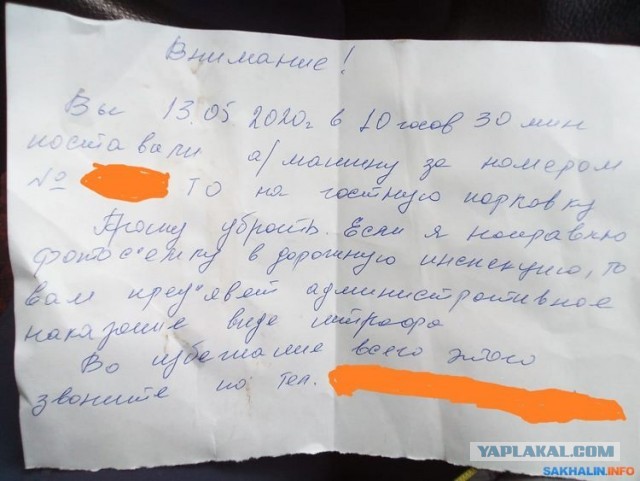 Внимание!
Вы 13.05 2020г в 10 часов 30 мин
поставили а/машину за номером
№ ТО на частную парковку
Прошу убрать. Если я направлю
фотос'емку в дорожную инспекцию, то
вам пред'явят административное
наказание виде штрафа
Во избежание всего этого
звоните по тел.
YAPLAKAL.COM
SAKHALIN.INFO